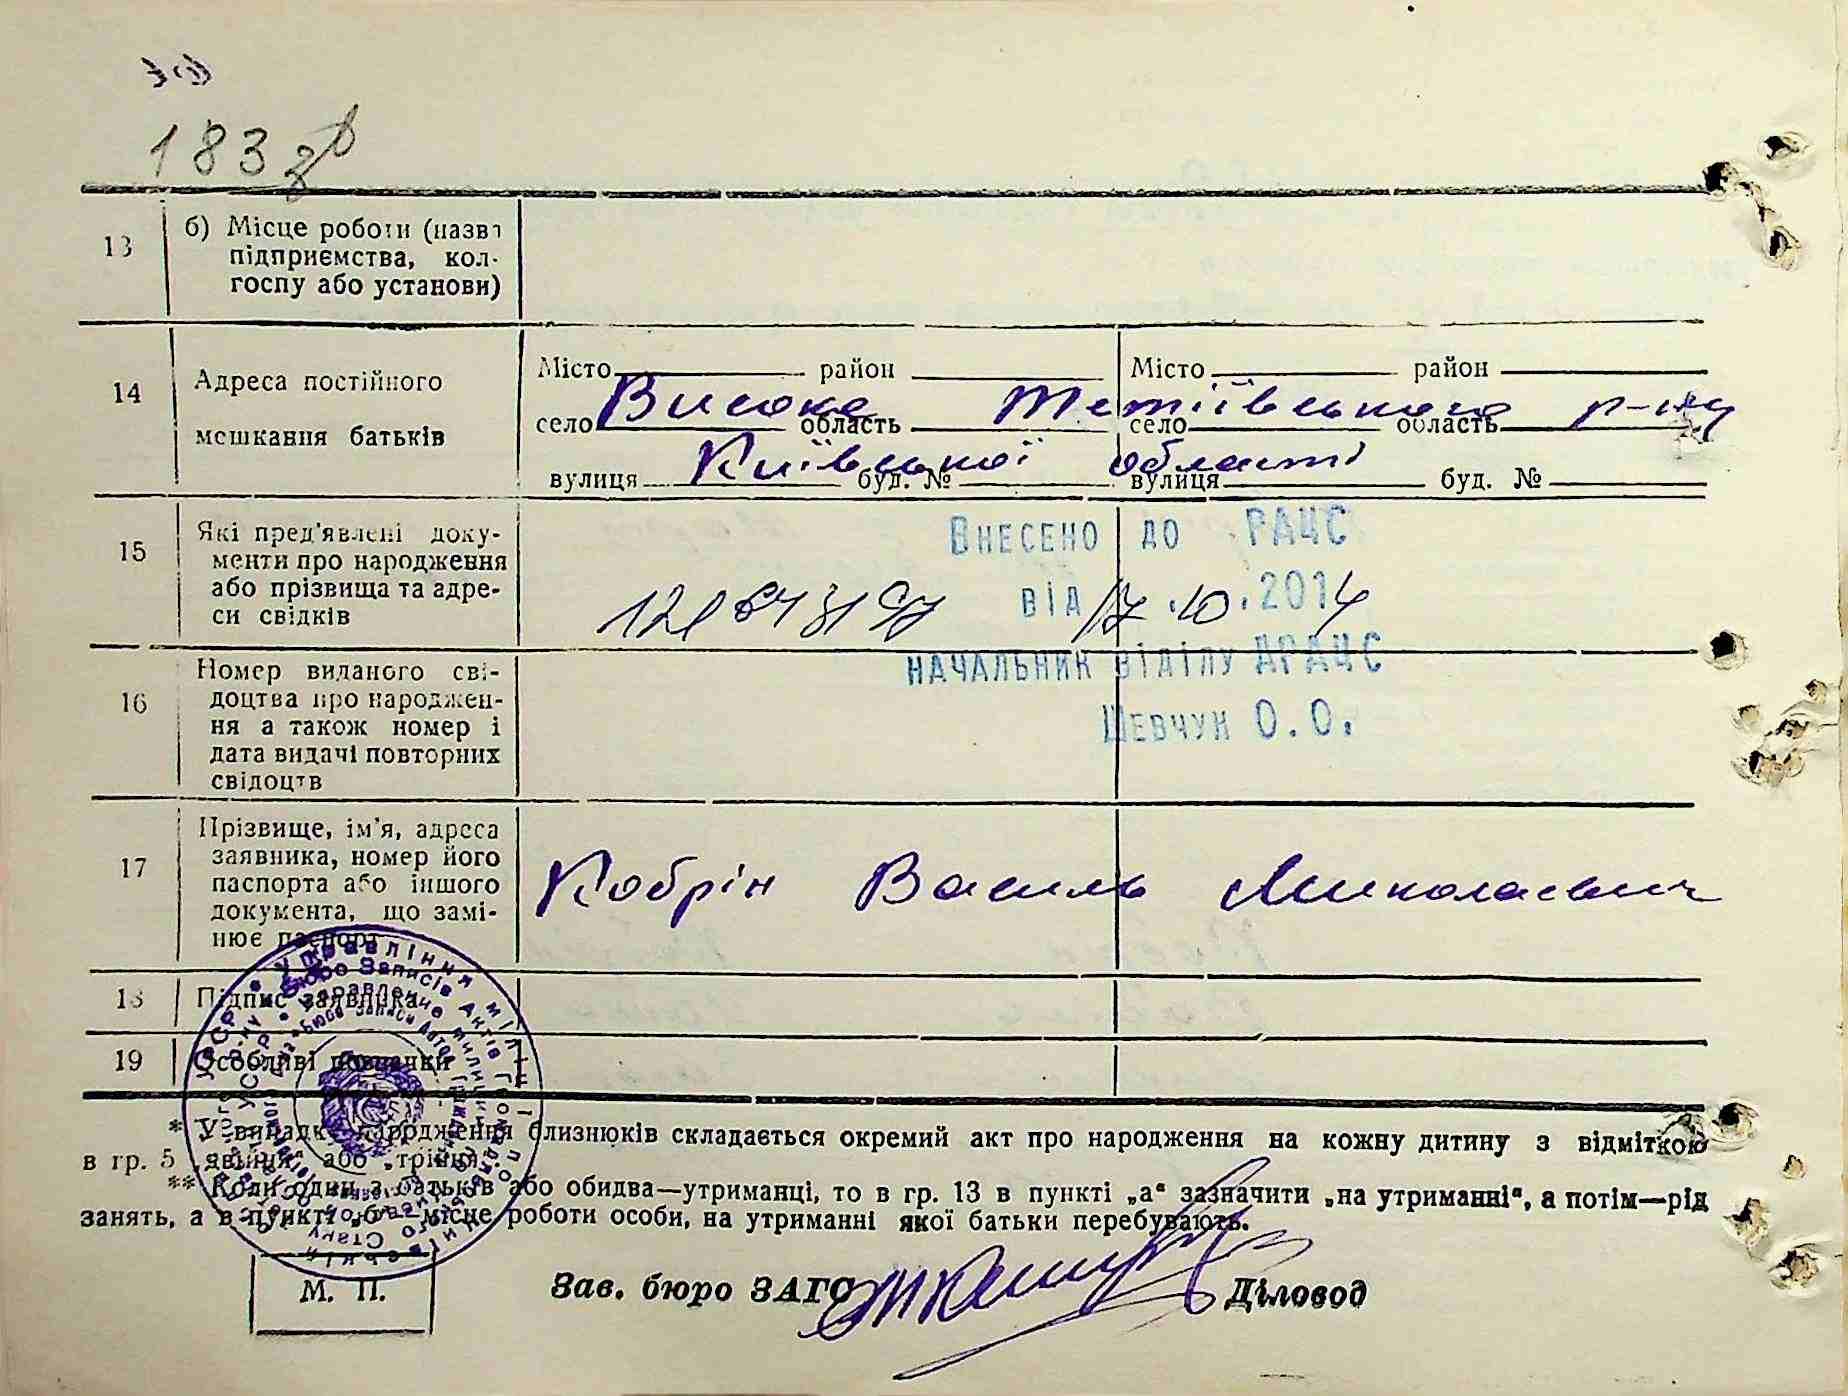 183 зв
13
б) Місце роботи (назва
підприємства, кол-
госпу або установи)
14
Адреса постійного
мешкання батьків
Місто район Місто район
Висока Тетіївського р-ну
село область село область
Київської області
вулиця буд. № вулиця буд. №
15
Які пред'явлені доку-
менти про народження
або прізвища та адре-
си свідків
Внесено до РАЦС
від 17.10.2014
начальник відділу ДРАЦС
Шевчук О.О.
16
Номер виданого сві-
доцтва про народжен-
ня а також номер і
дата видачі повторних
свідоцтв
17
Прізвище, ім'я, адреса
заявника, номер його
паспорта або іншого
документа, що замі-
нює паспорт
Кобрін Василь Миколаевич
18
Підпис заявника
19
Особливі позначки
* У випадку народження близнюків складається окремий акт про народження на кожну дитину з відміткою
в гр. 5 „двійня" або „трійня".
** Коли один з батьків або обидва—утриманці, то в гр. 13 в пункті „а" зазначити „на утриманні", а потім—рід
занять, а в пункті „б"—місце роботи особи, на утриманні якої батьки перебувають.
М. П.
Зав. бюро ЗАГС Діловод